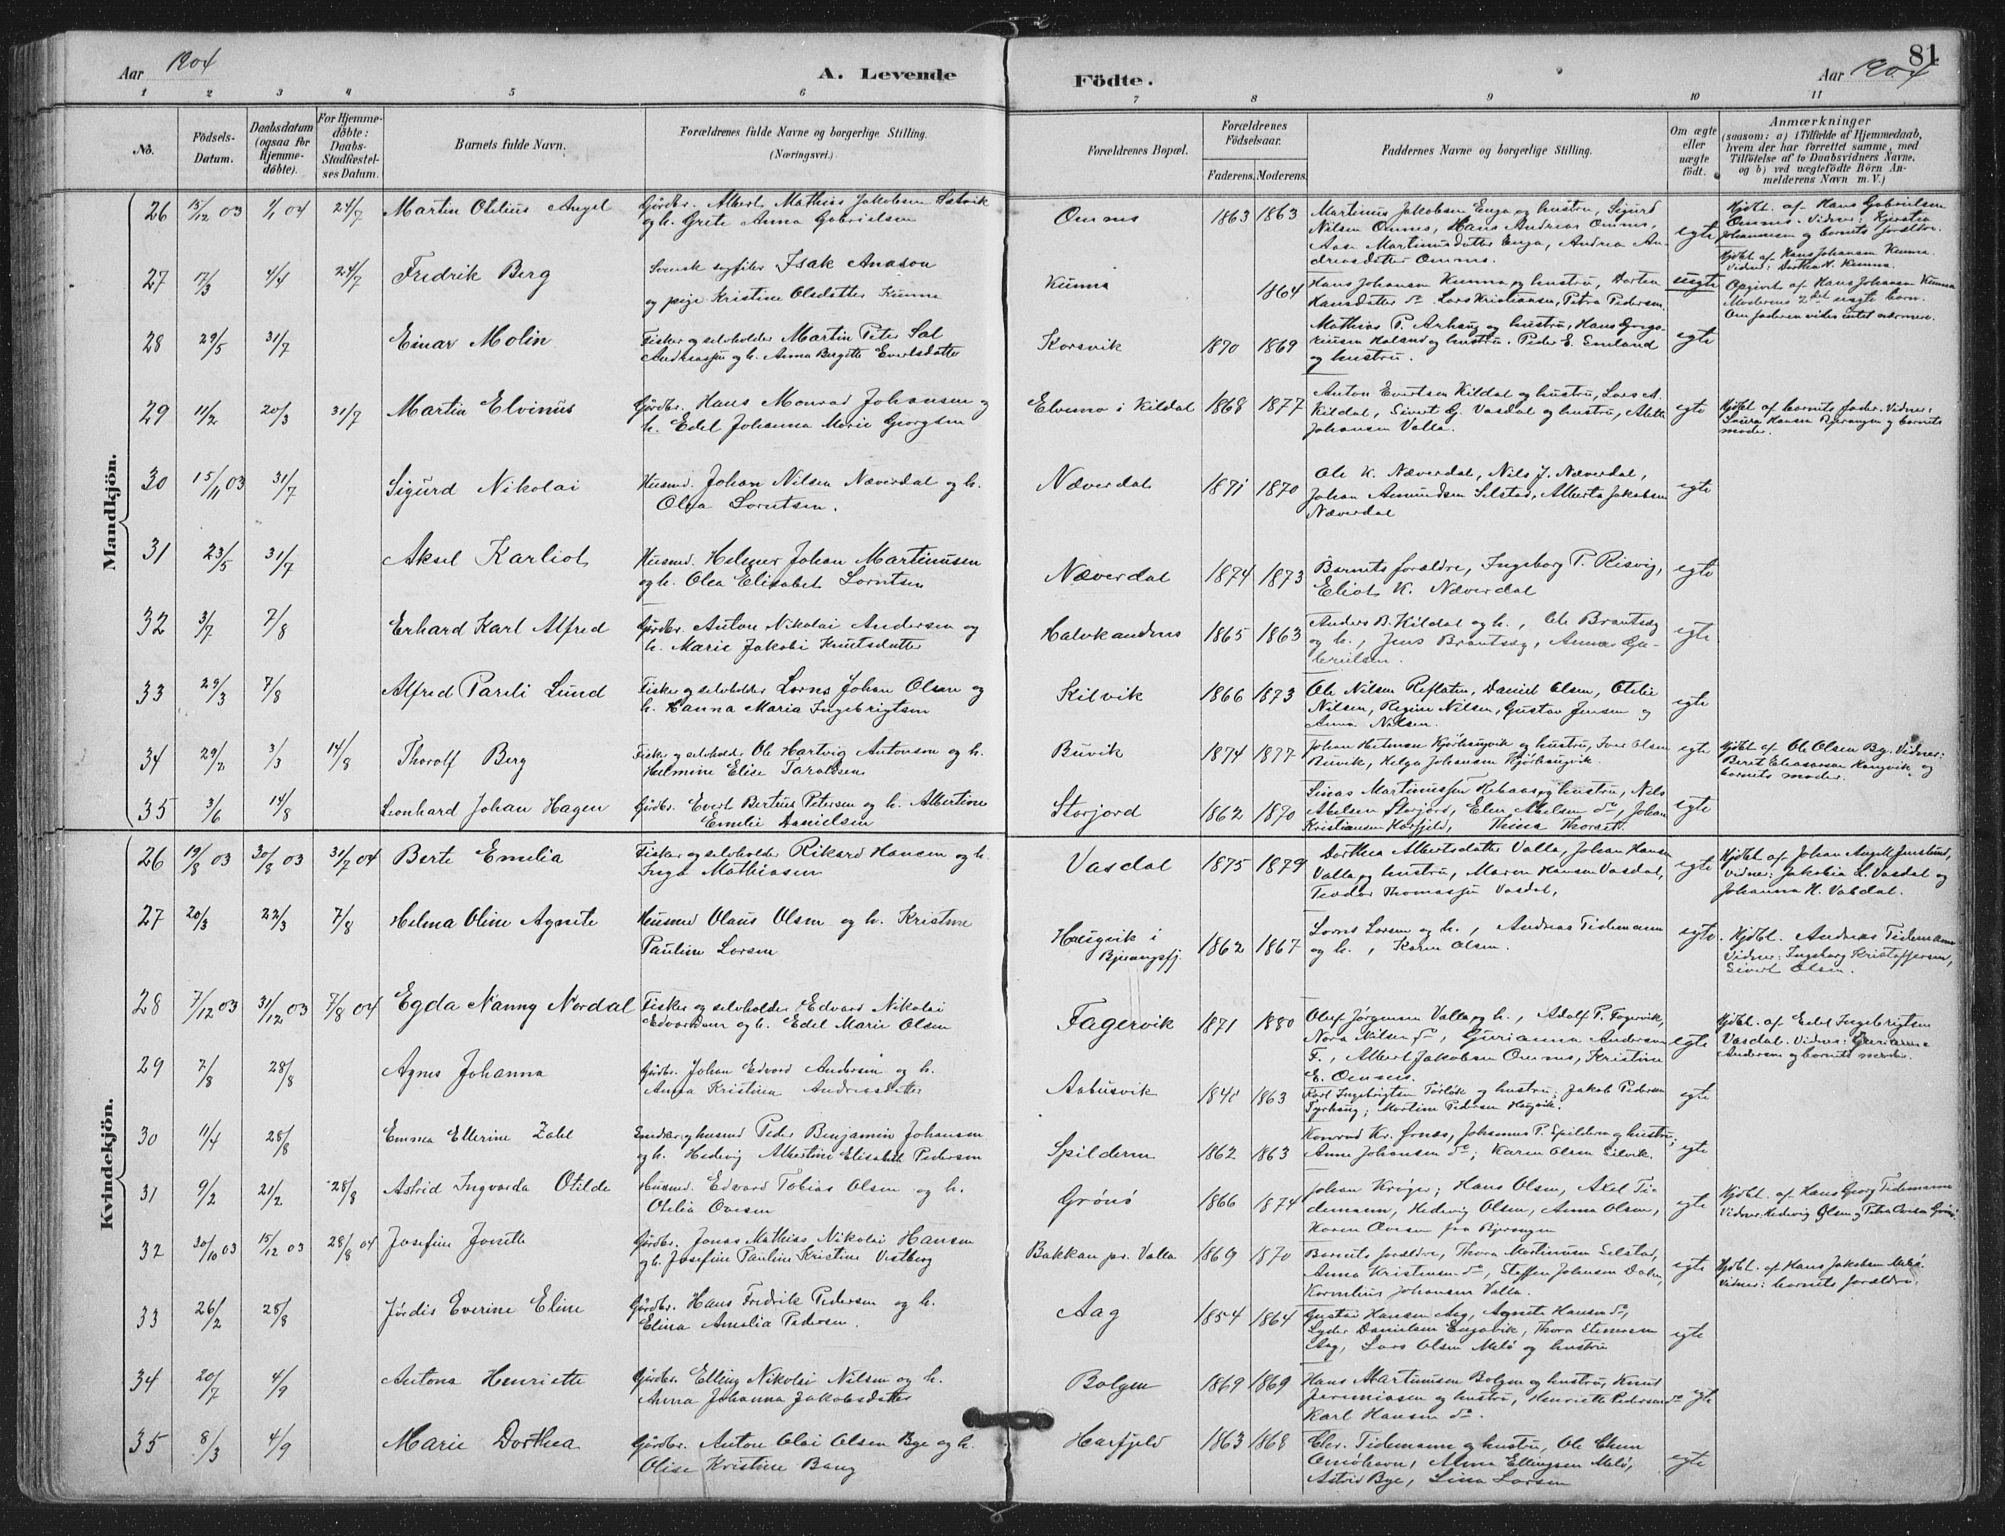 Aar 1904
A. Levende
Födte.
Aar 1904
81
1 2 3 4 5 6 7 8 9 10 11
No.
Födsels-Datum.
Daabsdatum (ogsaa for Hjemme-døbte).
For Hjemme-døbte: Daabs-Stadfæstel-ses Datum.
Barnets fulde Navn.
Forældrenes fulde Navne og borgerlige Stilling.
(Næringsvei.)
Forældrenes Bopæl.
Forældrenes Födselsaar.
Faderens. Moderens.
Faddernes Navne og borgerlige Stilling.
Om ægte eller uægte födt.
Anmærkninger
(saasom: a) i Tilfælde af Hjemmedaab,
hvem der har forrettet samme, med
Tilföielse af to Daabsvidners Navne,
og b) ved uægtefödte Börn An-
melderens Navn m. V.)
Mandkjön.
26 15/12 03 1/1 04 24/7 Martin Otelius Angel
Gårdbr. Albert Mathias Jakobsen Selvik
og h. Grete Anna Gabrielsen
Omnes 1863 1863
Martinus Jakobsen Enga og hustru, Sigurd
Nilsen Omnes, Hans Andreas Omnes,
Aase Martinusdatter Enga, Andrea An-
dreasdatter Omnes.
egte
Hjdbt. af Hans Gabrielsen
Omnes. Vidner: Kjerstea
Johannesen og barnets forældre.
27 17/3 4/4 24/7 Fredrik Berg
Svensk Isak Anason
og pige Kristine Olsdatter Kunna
Kunna 1864
Hans Johansen Kunna og hustru, Dorten
Hansdatter do Lars Kristiansen, Petra Pedersen.
uegte
Hjdbt. af Hans Johansen Kunna.
Vidner: Dorthea N. Kunna.
Opgivet af Hans Johansen Kunna
Moderens 2det uegte barn.
Om faderen vides intet nærmere.
28 29/5 31/7 Einar Molin
Fisker og selvholder Martin Peter Sal
Andreassen og h. Anna Birgitte Evertsdatter
Korsvik 1870 1869
Mathias P. Arhaug og hustru, Hans Grego-
riusen Haland og hustru. Peder E. Emeland
og hustru.
egte
29 11/2 20/3 31/7 Martin Elvinus
Gårdbr. Hans Monrad Johansen og
h. Edel Johanna Marie Georgsen
Elvemo i Kildal 1868 1877
Anton Evertsen Kildal og hustru, Lars A.
Kildal, Sivert G. Vasdal og hustru,
Johansen Valla.
egte
Hjdbt. af barnets fader. Vidner:
Laura Hansen Bjerangen og barnets
moder.
30 15/11 03 31/7 Sigurd Nikolai
Husmd. Johan Nilsen Næverdal og h.
Olea Lorntsen.
Næverdal 1871 1870
Ole K. Næverdal, Nils J. Næverdal,
Johan Amundsen Selstad, Alberta Jakobsen
Næverdal
egte
31 23/5 31/7 Aksel Karliot
Husmd. Helmer Johan Martinusen
og h. Olea Elisabet Lorntsen
Næverdal 1874 1873
Barnets forældre, Ingeborg P. Risvig,
Eliot K. Næverdal
egte
32 3/7 7/8 Erhard Karl Alfred
Gårdbr. Anton Nikolai Andersen og
h. Marie Jakobi Knutsdatter
Halvkandnes 1865 1863
Anders B. Kildal og h., Ole Brantsæg
og h., Jens Brantsæg, Anna Ga-
brielsen.
egte
33 29/3 7/8 Alfred Pareli Lund
Fisker og selvholder Lorns Johan Olsen og
h. Hanna Maria Ingebrigtsen
Skilvik 1866 1873
Ole Nilsen Reflaten, Daniel Olsen, Otelie
Nilsen, Regine Nilsen, Gustav Jensen og
Anna Nilsen.
egte
34 29/2 3/3 14/8 Thorolf Berg
Fisker og selvholder Ole Hartvig Antonsen og h.
Helmine Elise Taraldsen
Buvik 1874 1877
Johan Hetman Kjørhaugvik og hustru, Iver Olsen
Buvik, Helga Johansen Kjørhaugvik.
egte
Hjdbt. af Ole Olsen By. Vidner:
Beret Eleasarsen Haugvik og
barnets moder.
35 3/6 14/8 Leonhard Johan Hagen
Gårdbr. Evert Berteus Petersen og h. Albertine
Emelie Danielsen
Storjord 1862 1870
Martinussen og hustru, Nils
Abelsen Storjord, Elen Abelsen do, Johan
Kristiansen Harfjeld, Thina Thorset.
egte
Kvindekjön.
26 19/8 03 30/8 03 31/7 04 Berte Emelia
Fisker og selvholder Rikard Hansen og h.
Inga Mathiasen
Vasdal 1875 1879
Dorthea Albertsdatter Valla, Johan Hansen
Valla og hustru, Maren Hansen Vasdal,
Teodor Thomassen Vasdal,
egte
Hjdbt. af Johan Angell Jenslund,
Vidner: Jakobia L. Vasdal og
Johanna H. Vasdal.
27 20/3 22/3 7/8 Helma Oline Agnete
Husmd Olaus Olsen og h. Kristine
Pauline Lorsen
Haugvik i
Bjerangsfj. 1862 1867
Lorns Lorsen og h., Andreas Tidemann
og h., Karen Olsen.
egte
Hjdbt. Andreas Tidemann
Vidner: Ingeborg Kristoffersen,
Sivert Olsen.
28 7/12 03 31/12 03 7/8 04 Egda Nanny Nordal
Fisker og selvholder Edvard Nikolai
Edvardsen og h. Edel Marie Olsen
Fagervik 1871 1880
Olef Jørgensen Valla og h., Adolf P. Fagervik,
Nora Nilsen do, Gurianna Andersen
F., Albert Jakobsen Omnes, Kristine
E. Omnes.
egte
Hjdbt. af Edel Ingebrigtsen
Vasdal. Vidner: Gurianna
Andersen og barnets moder.
29 7/8 28/8 Agnes Johanna
Gårdbr. Johan Edvard Andersen og h.
Anna Kristina Andreasdatter
Aabusvik 1841 1863
Karl Ingebrigtsen og hustru; Jakob Pedersen
Fyrhaug; Martine Pedersen Haugvik.
egte
30 11/4 28/8 Emma Ellerine Zahl
Smed og husmd Peder Benjamin Johansen
og h. Hedevig Albertine Elisabeth Pedersen
Spilderen 1862 1863
Konrad Kr. Ørnes, Johannes P. Spilderen og hustru;
Anne Johansen do; Karen Olsen Selvik.
egte
31 9/2 21/2 28/8 Astrid Ingvarda Otilde
Husmd. Edvard Tobias Olsen og h.
Otelia Ovesen
Grønø 1866 1874
Johan Krøger; Hans Olsen, Axel Ti-
demann, Hedevig Olsen, Anna Olsen,
Karen Ovesen fra Bjerangen
egte
Hjdbt. af Hans Georg Tidemann
Vidner: Hedevig Olsen og Petra Ovesen Grønø
32 30/10 03 15/12 03 28/8 04 Josefine Jonette
Gårdbr. Jonas Mathias Nikolai Hansen
og h. Josefine Pauline Kristine Vestberg
Bakkan pr. Valla 1869 1870
Barnets forældre, Thora Martinusen Selstad,
Anna Kristensen do, Steffen Johansen Dalen,
Kornelius Johansen Valla.
egte
Hjdbt. af Hans Jakobsen Melø
Vidner: barnets forældre.
33 26/2 28/8 Jørdis Everine Eline
Gårdbr. Hans Fredrik Pedersen og h.
Elina Amalia Pedersen.
Aag 1854 1864
Gustav Hansen Aag, Agnete Hansen do,
Lyder Danielsen Engavik, Thora Stensen
Aag, Lars Olsen Melø og hustru
egte
34 20/7 4/9 Antona Henriette
Gårdbr. Elling Nikolai Nilsen og h.
Anna Johanna Jakobsdatter
Bolgen 1869 1869
Hans Martinusen Bolgen og hustru, Knud
Jeremiasen og hustru, Henriette Pedersen do
Karl Hansen do.
egte
35 8/3 4/9 Marie Dorthea
Gårdbr. Anton Olai Olsen Bye og h.
Olise Kristine Bang
Harfjeld 1863 1868
Chr. Tidemann og hustru, Ole Chr.
Omøhavn, Alma Ellingsen Melø,
Astrid Bye, Lina Larsen
egte